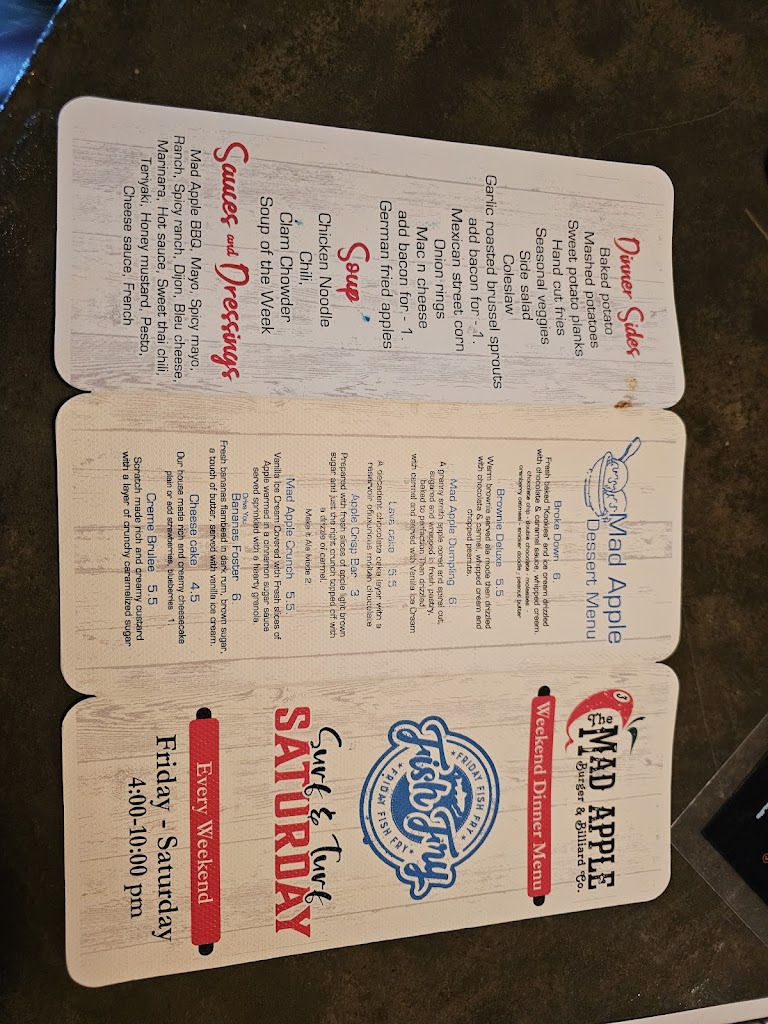 Dinner Sides
Baked potato
Mashed potatoes
Sweet potato planks
Hand cut fries
Seasonal veggies
Side salad
Coleslaw
Garlic roasted brussel sprouts
add bacon for - 1.
Mexican street corn
Onion rings
Mac n cheese
add bacon for - 1.
German fried apples
Soup
Chicken Noodle
Chili,
Clam Chowder
Soup of the Week
Sauces and Dressings
Mad Apple BBQ, Mayo, Spicy mayo,
Ranch, Spicy ranch, Dijon, Bleu cheese,
Marinara, Hot sauce, Sweet thai chili,
Teriyaki, Honey mustard, Pesto,
Cheese sauce, French
Mad Apple
Dessert Menu
Broke Down 6
Fresh baked "Kookies" and ice cream drizzled
with chocolate & caramel sauce, whipped cream.
chocolate chip - double chocolate - molasses
cranberry oatmeal - snicker doodle - peanut butter
Brownie Deluxe 5.5
Warm brownie served ala mode then drizzled
with chocolate & carmel, whipped cream and
chopped peanuts.
Mad Apple Dumpling 6
A granny smith apple cored and spiral cut,
sugared and wrapped in fresh pastry,
baked to perfection then drizzled
with carmel and served with Vanilla Ice Cream
Lava Cake 5.5
A decadent chocolate cake layer with a
reservoir of luxurious molten chocolate
Apple Crisp Bar 3
Prepared with fresh slices of apple light brown
sugar and just the right crunch topped off with
a drizzle of carmel.
Make it Ala Mode 2
Mad Apple Crunch 5.5
Vanilla Ice Cream Covered with Fresh slices of
Apple warmed in a cinnamon sugar sauce
served sprinkled with a hearty granola.
Drive You
Bananas Foster 6
Fresh bananas flambeed in dark rum, brown sugar,
a touch of butter, served with vanilla ice cream.
Cheese cake 4.5
Our house made rich and creamy cheesecake
plain or add strawberries, blueberries 1
Creme Brulee 5.5
Scratch made rich and creamy custard
with a layer of crunchy caramelized sugar
3
The
MAD APPLE
Burger & Billiard Co.
Weekend Dinner Menu
FRIDAY FISH FRY
Fish Fry
FRIDAY FISH FRY
Surf & Turf
SATURDAY
Every Weekend
Friday - Saturday
4:00-10:00 pm